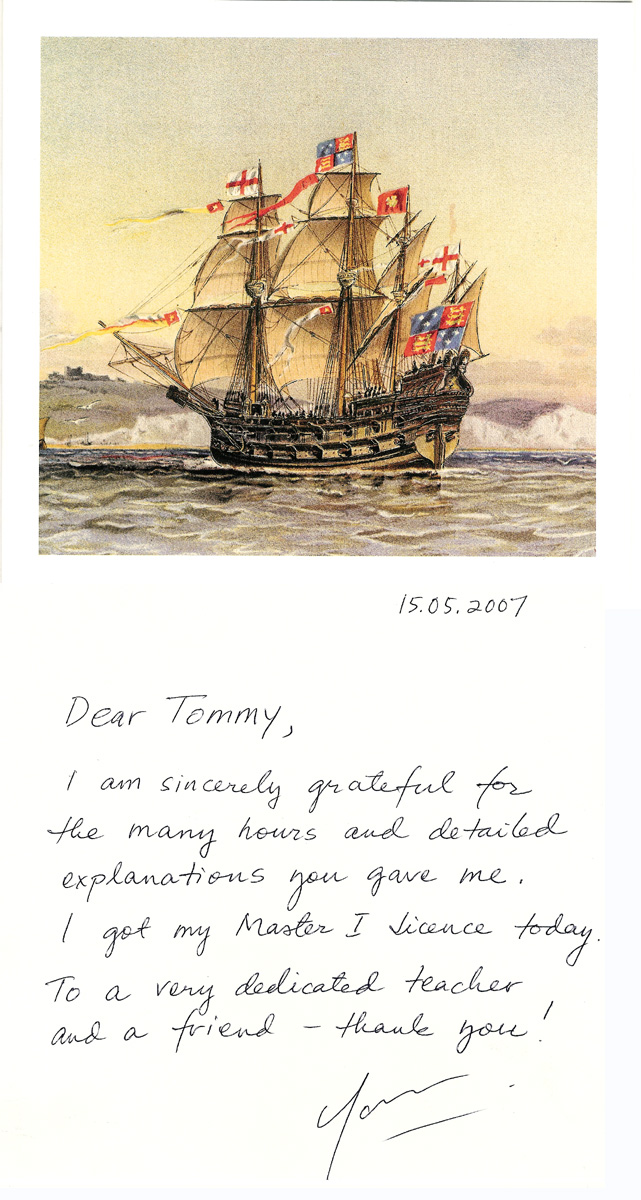 15.05.2007
Dear Tommy,
I am sincerely grateful for
the many hours and detailed
explanations you gave me.
I got my Master I Licence today.
To a very dedicated teacher
and a friend – thank you!